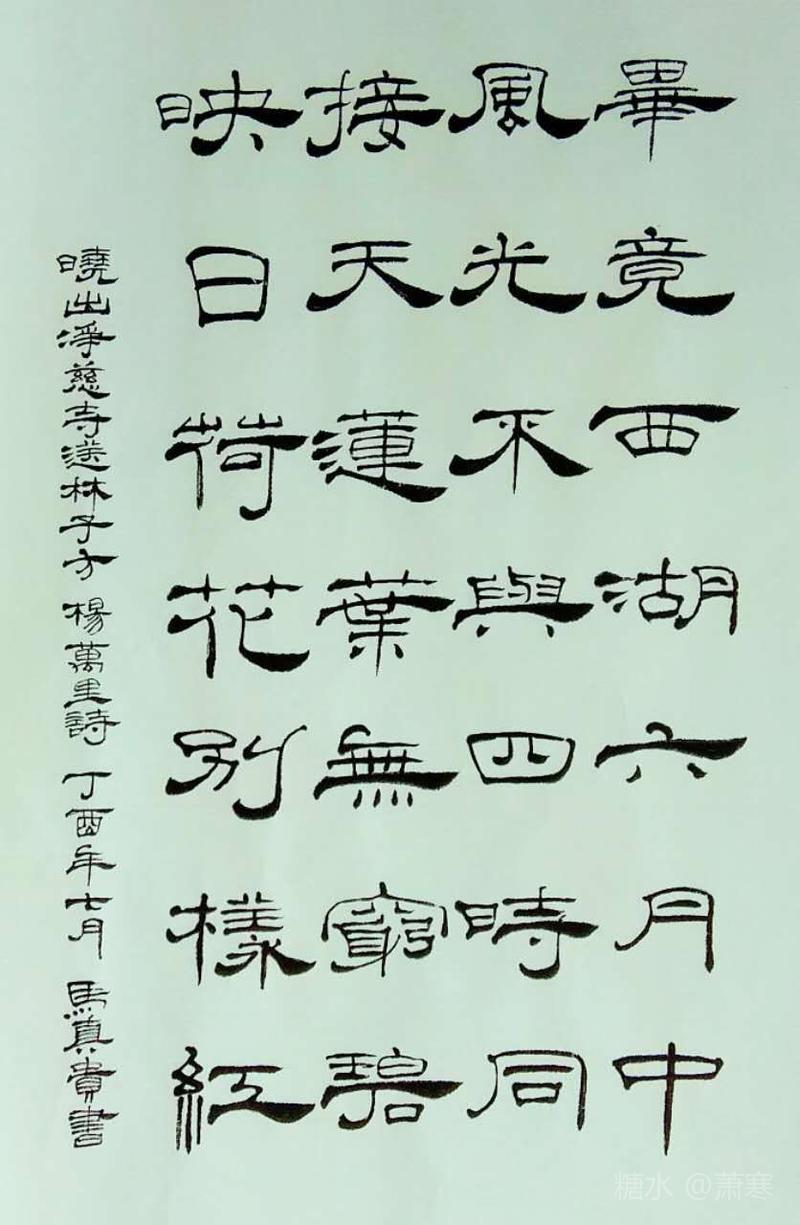 畢竟西湖六月中
風光不與四時同
接天蓮葉無窮碧
映日荷花別樣紅
曉出淨慈寺送林子方 楊萬里詩 丁酉年七月 馬真貴書
糖水 @萧寒